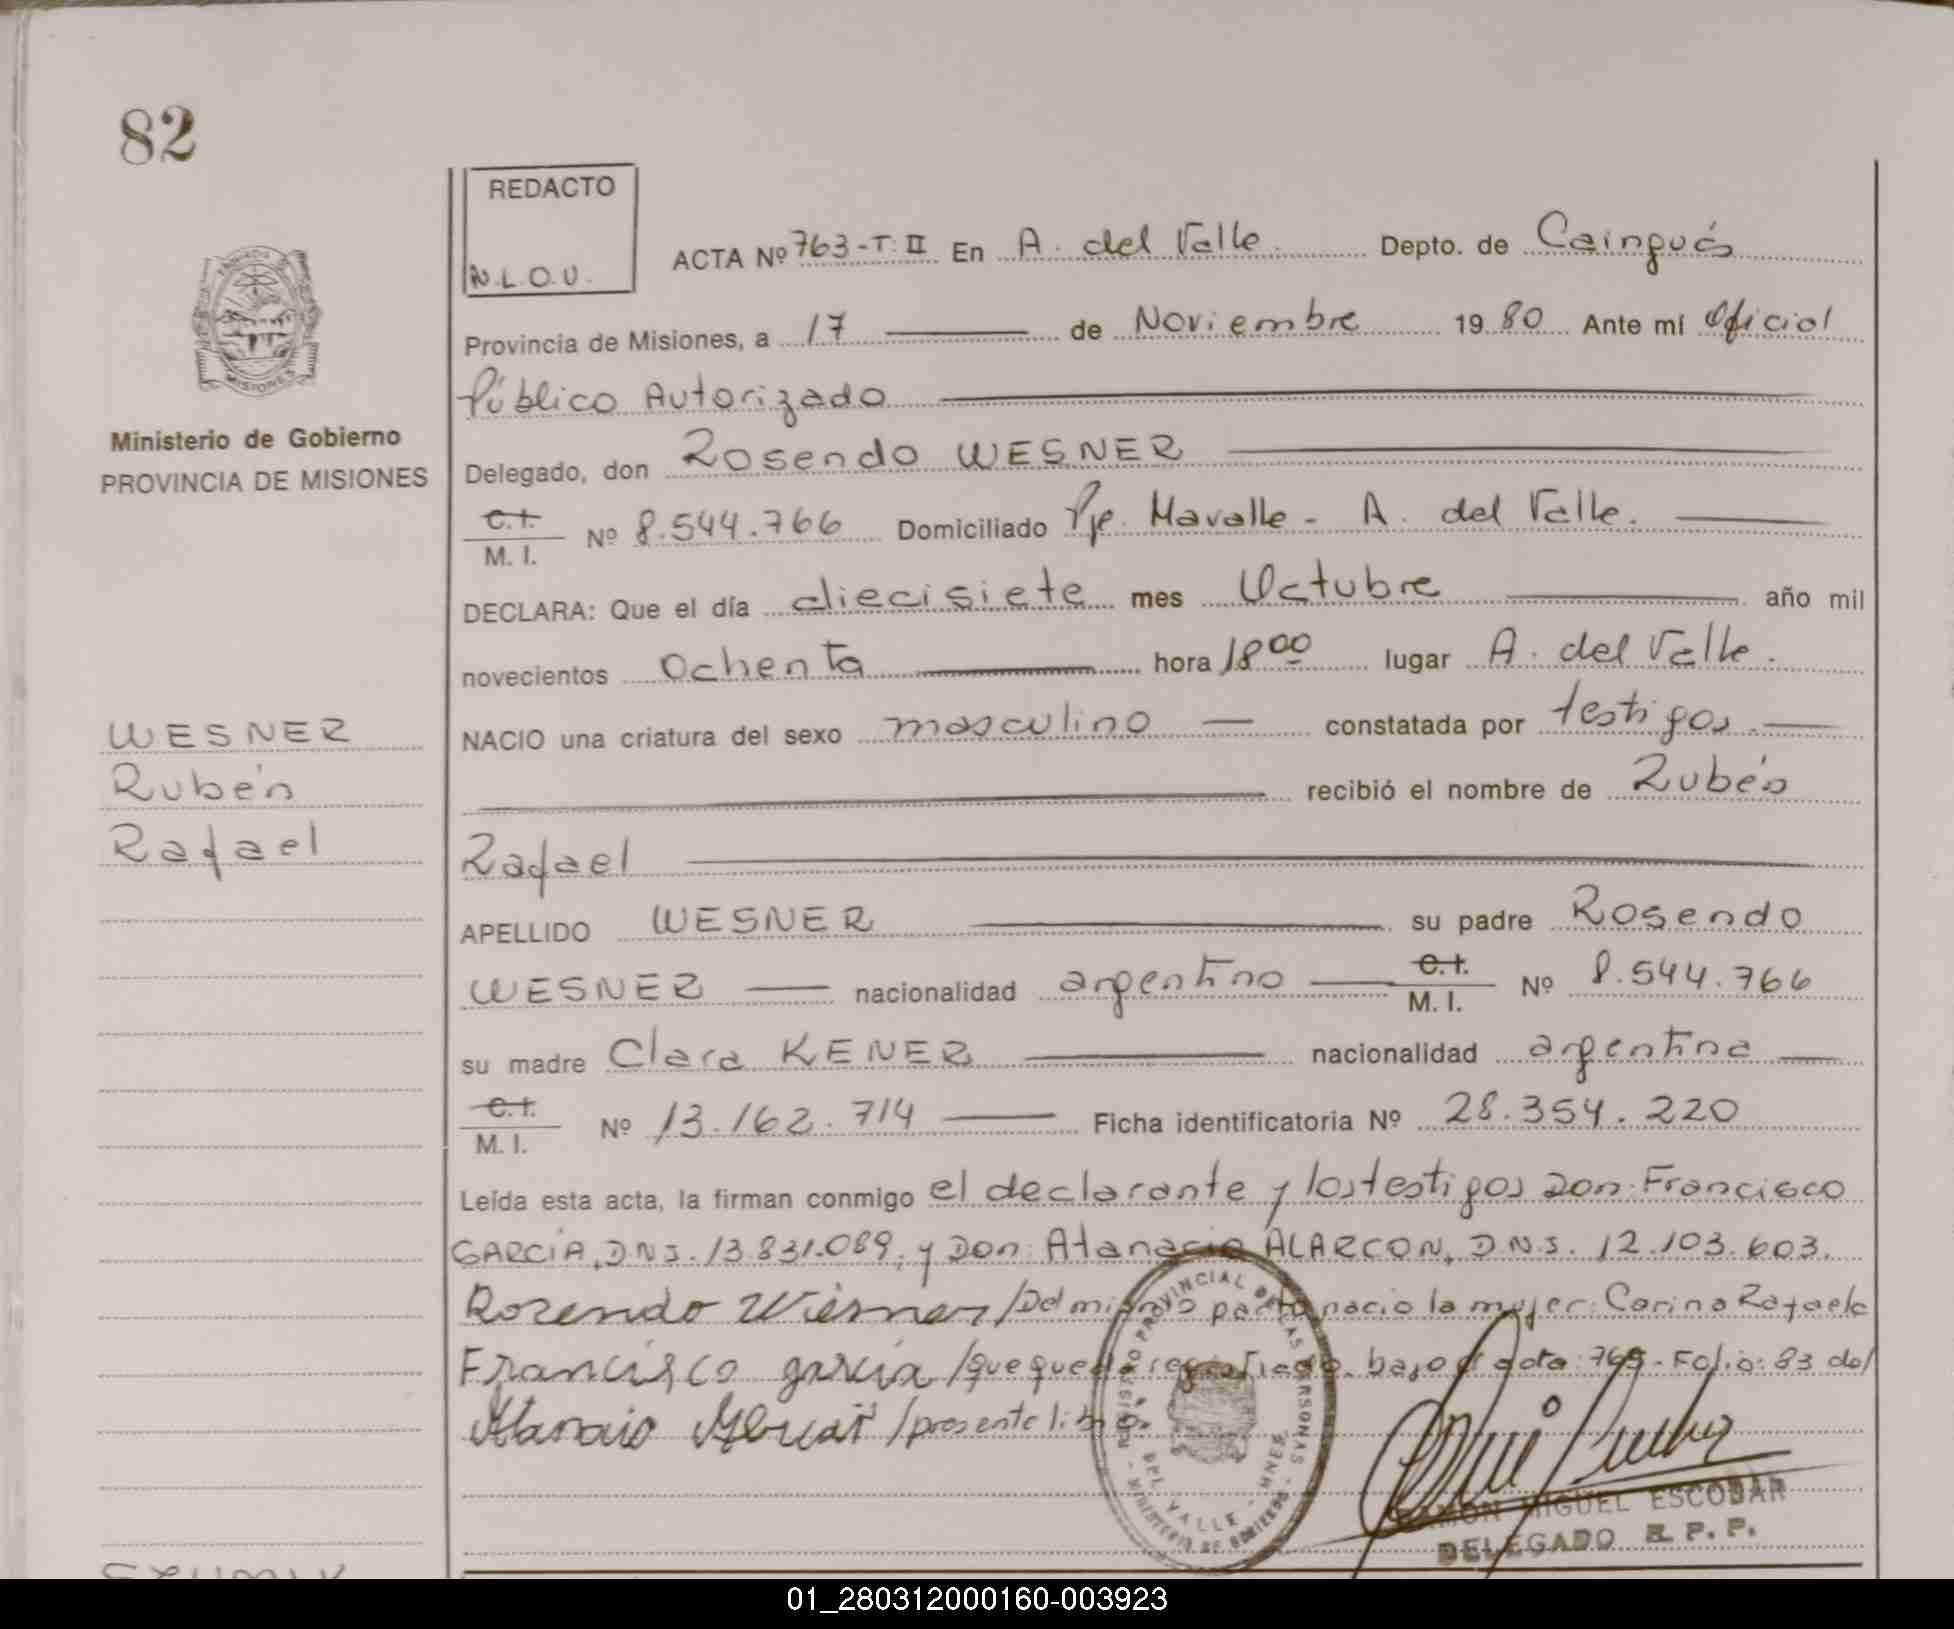 82
REDACTO
N.L.O.U.
ACTA Nº 763-T: II En A. del Valle. Depto. de Cainguás
Provincia de Misiones, a 17 de Noviembre 1980 Ante mí Oficial
Público Autorizado
Ministerio de Gobierno
PROVINCIA DE MISIONES
Delegado, don Rosendo WESNER
C.I. M. I. Nº 8.544.766 Domiciliado Pje. Mavalle - A. del Valle.
DECLARA: Que el día diecisiete mes Octubre año mil
novecientos ochenta hora 18 00 lugar A. del Valle.
WESNER
Rubén
Rafael
NACIO una criatura del sexo masculino constatada por testigos.
recibió el nombre de Rubén
Rafael
APELLIDO WESNER su padre Rosendo
WESNER nacionalidad argentino C.I. M. I. Nº 8.544.766
su madre Clara KENER nacionalidad argentina
C.I. M. I. Nº 13.162.714 Ficha identificatoria Nº 28.354.220
Leída esta acta, la firman conmigo el declarante y los testigos Don: Francisco
GARCIA, D.N.I. 13.831.089, y Don: Atanacio ALARCON, D.N.I. 12.103.603.
Rosendo Wiesner /Del mismo parto nacio la mujer: Carina Rafaela
Francisco garcia /que queda registrada bajo acta: 765 - Folio: 83 del
/presente libro.
REGISTRO PROVINCIAL DE LAS PERSONAS
DEL VALLE - MNES.
MINISTERIO DE GOBIERNO
RAMON MIGUEL ESCOBAR
DELEGADO R. P. P.
01_280312000160-003923